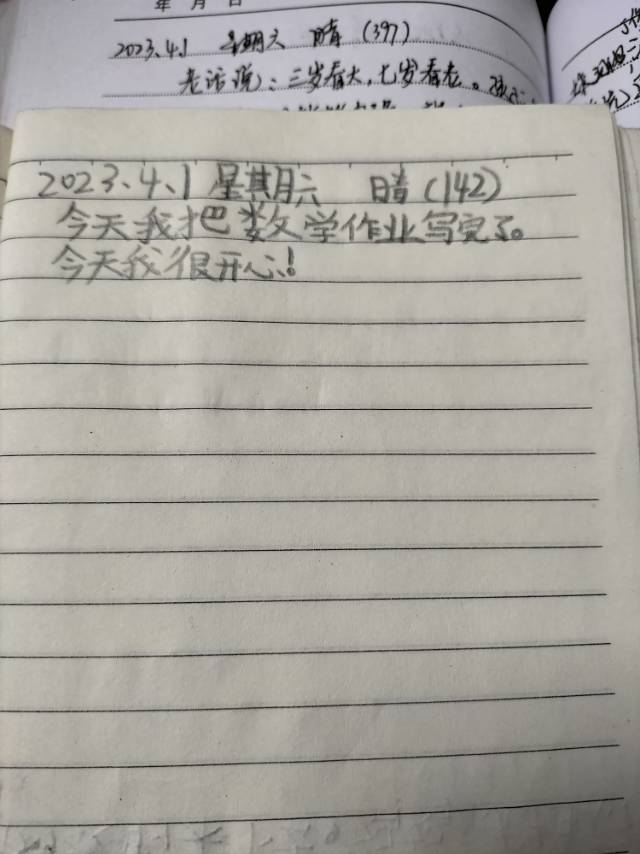 年 月 日
2023.4.1 星期六 晴 (397)
老话说：三岁看大，七岁看老。
2023、4、1 星期六 晴(142)
今天我把数学作业写完了。
今天我很开心!